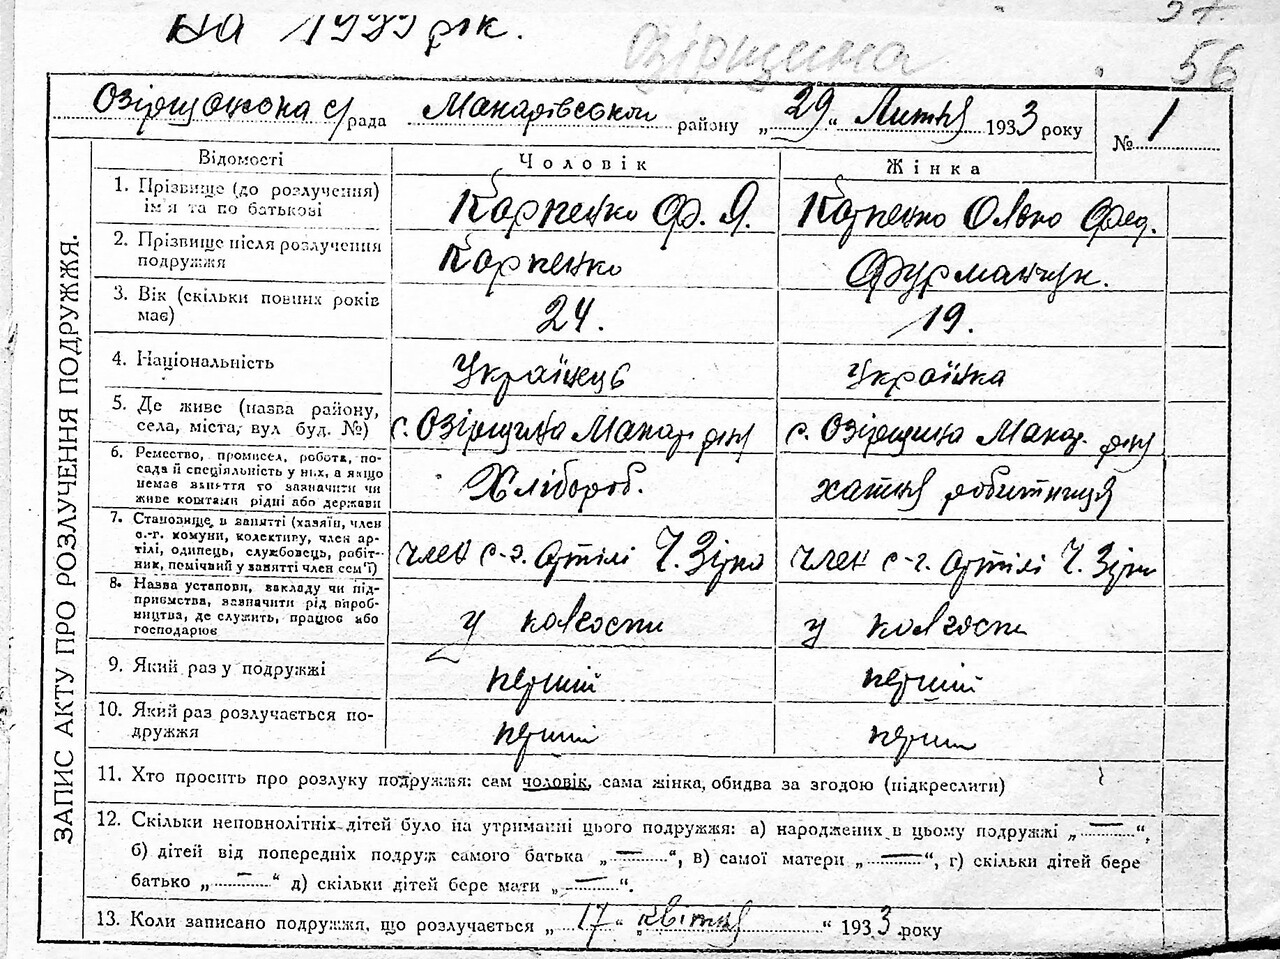 На 1933 рік.
Озірщина
57.
56
Озірщанська с/рада Макарівського району „29“ Липня 1933 року № 1
ЗАПИС АКТУ ПРО РОЗЛУЧЕННЯ ПОДРУЖЖЯ.
Відомості Чоловік Жінка
1. Прізвище (до розлучення) ім'я та по батькові Карпенко Ф. Я. Карпенко Олька Фед.
2. Прізвище після розлучення подружжя Карпенко Фурманчук.
3. Вік (скільки повних років має) 24. 19.
4. Національність Українець Українка
5. Де живе (назва району, села, міста, вул буд. №) с. Озірщина Макар. р-ну с. Озірщина Макар. р-ну
6. Ремество, промисел, робота, посада й спеціяльність у них, а якщо немає заняття то зазначити чи живе коштами рідні або держави Хлібороб. хатня робітниця
7. Становище в занятті (хазяїн, член с.-г. комуни, колективу, член артілі, одинець, службовець, робітник, помічний у занятті член сем'ї) член с-г. артілі Ч. Зірка член с-г. артілі Ч. Зірка
8. Назва установи, закладу чи підприємства, зазначити рід виробництва, де служить, працює або господарює у колгоспи у колгоспи
9. Який раз у подружжі перший перший
10. Який раз розлучається подружжя перший перший
11. Хто просить про розлуку подружжя: сам чоловік, сама жінка, обидва за згодою (підкреслити)
12. Скільки неповнолітніх дітей було на утриманні цього подружжя: а) народжених в цьому подружжі „—“,
б) дітей від попередніх подруж самого батька „—“, в) самої матери „—“, г) скільки дітей бере
батько „—“ д) скільки дітей бере мати „—“.
13. Коли записано подружжя, що розлучається „17“ „квітня“ 1933 року